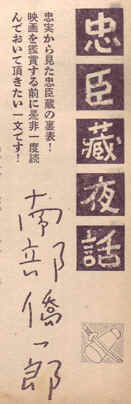 忠臣蔵夜話
忠実から見た忠臣蔵の裏表!
映画を鑑賞する前に是非一度読
んでおいて頂きたい一文です!
南部僑一郎